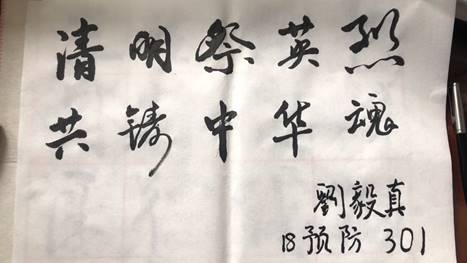 清明祭英烈
共铸中华魂
劉毅真
18预防 301